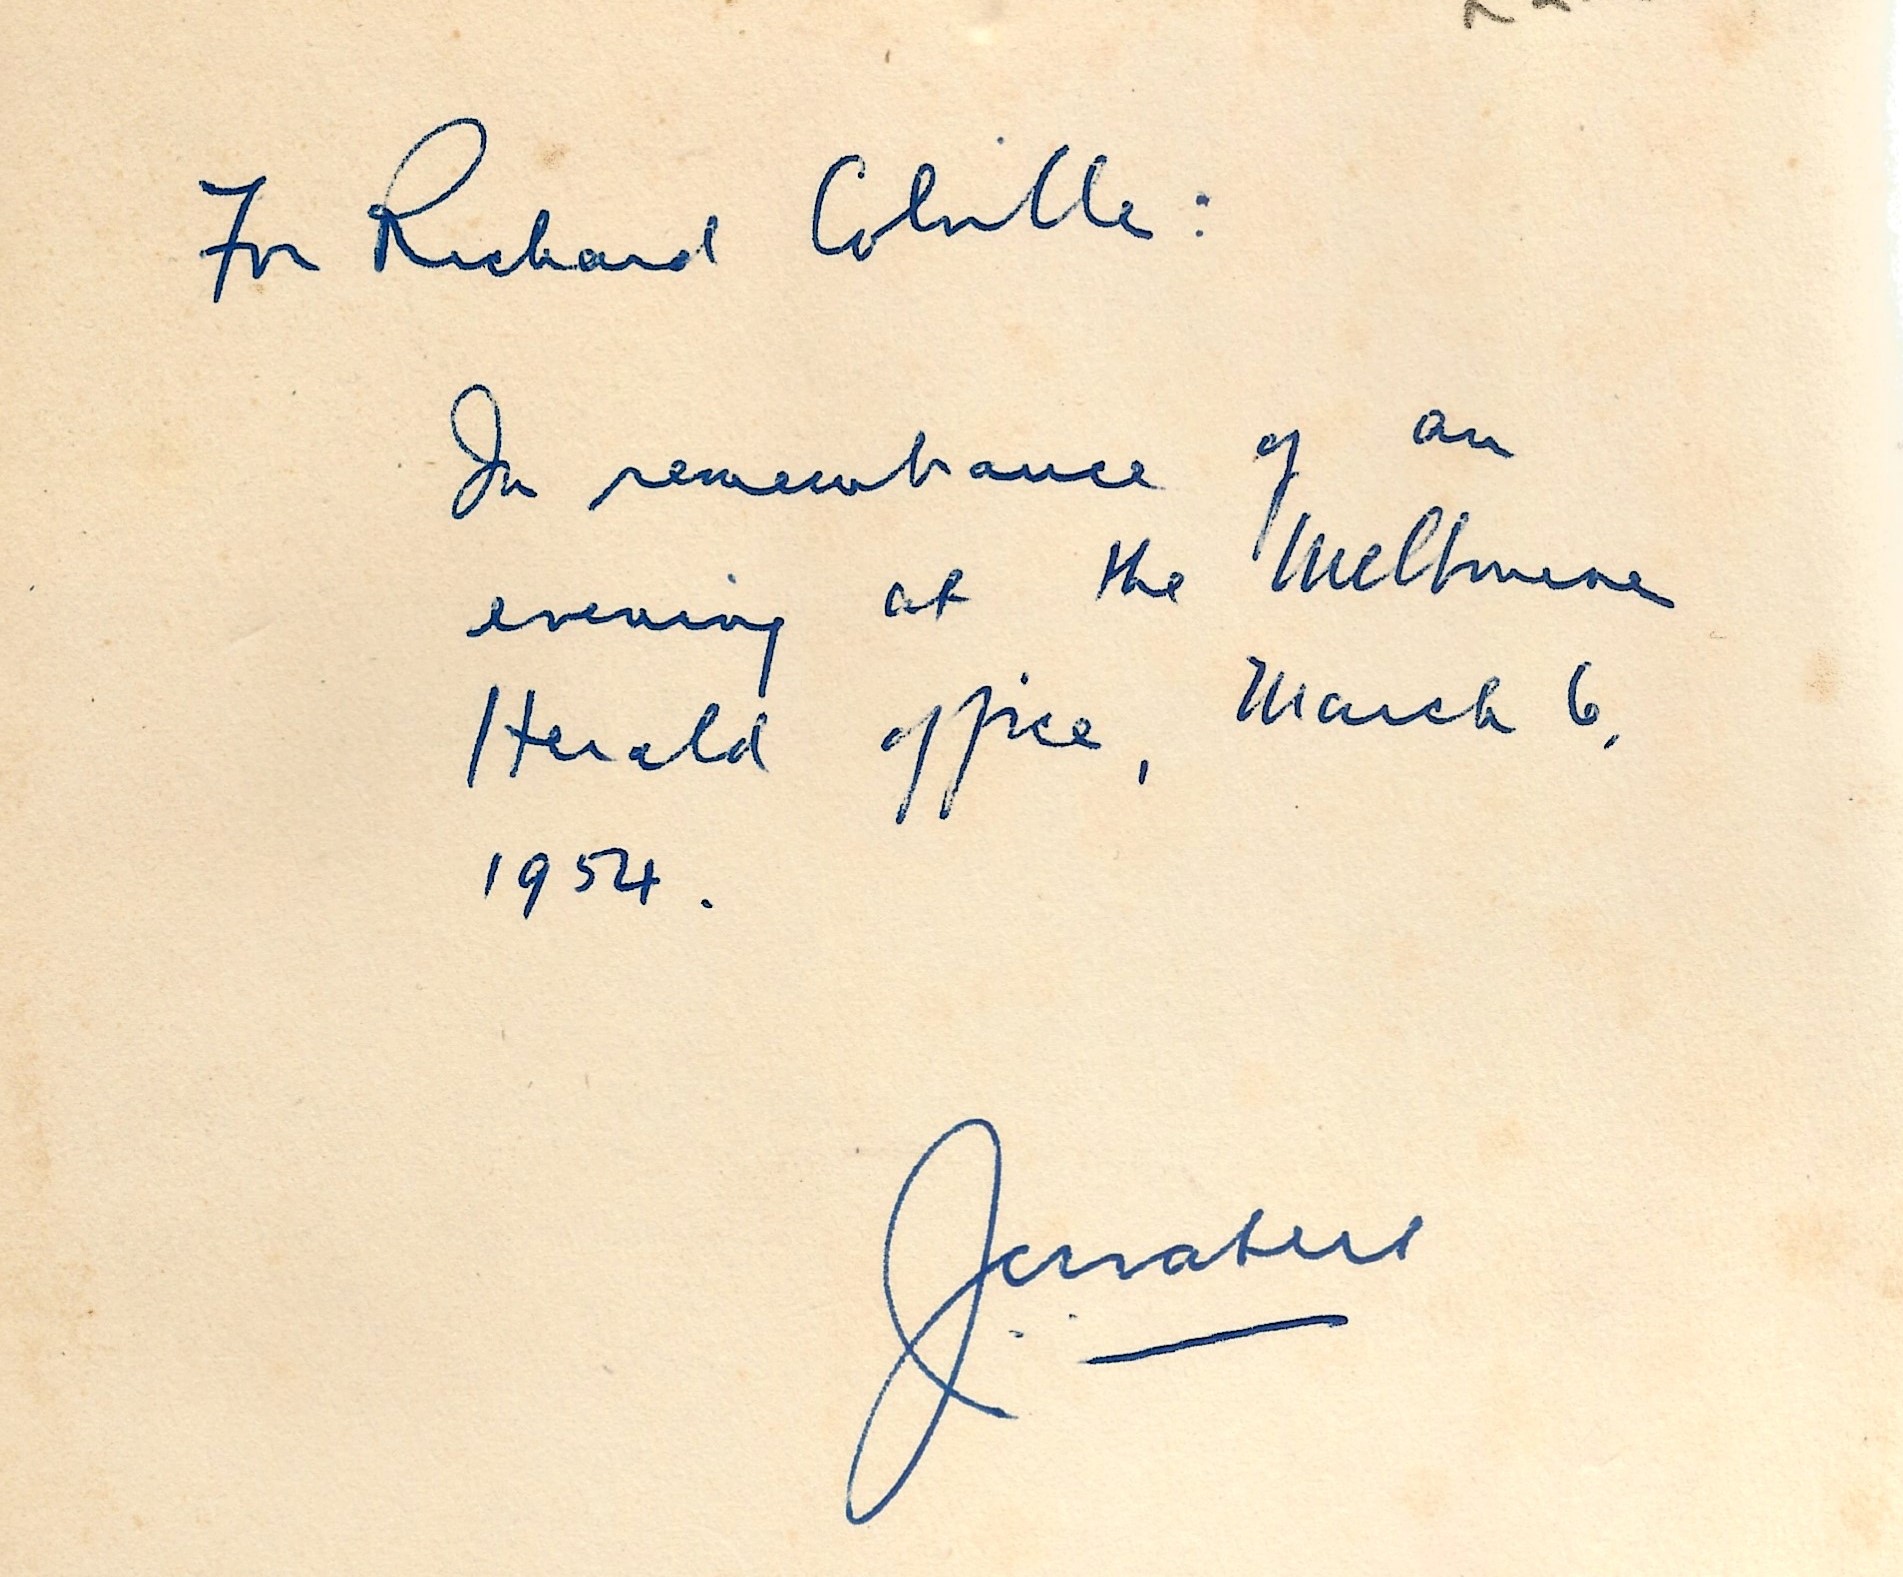 For Richard Colville:
In remembrance of an
evening at the Melbourne
Herald office, March 6,
1954.